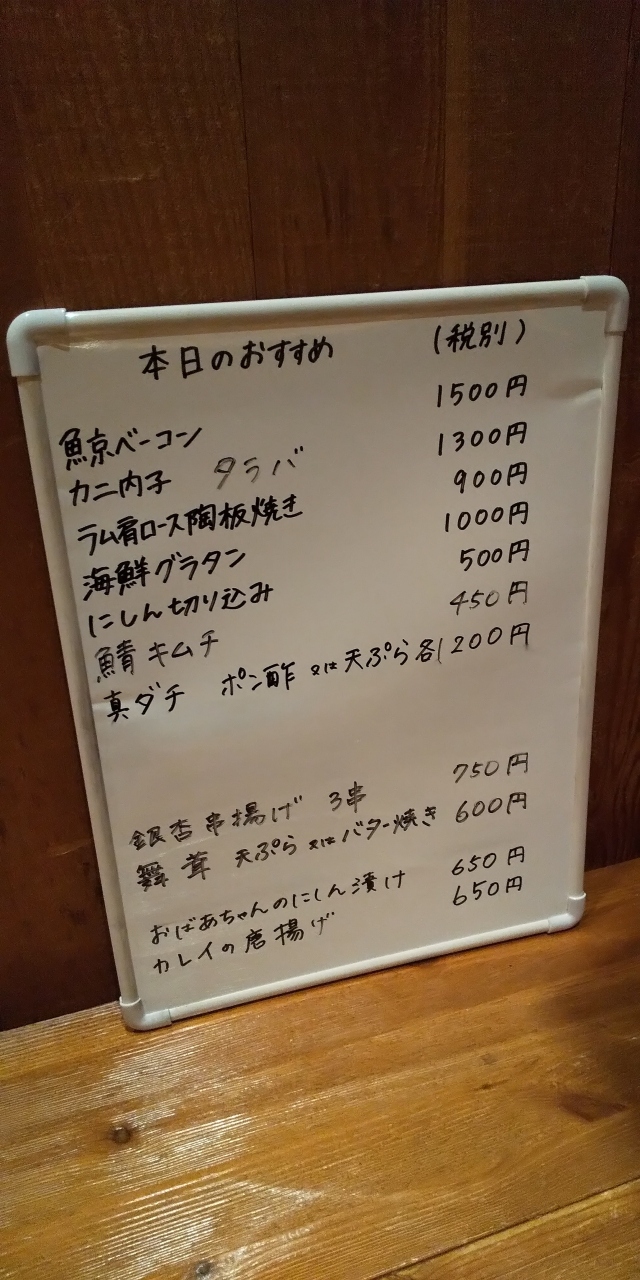 本日のおすすめ (税別)
鯨ベーコン 1500円
カニ内子 タラバ 1300円
ラム肩ロース陶板焼き 900円
海鮮グラタン 1000円
にしん切り込み 500円
鯖キムチ 450円
真ダチ ポン酢 又は天ぷら各1200円
銀杏串揚げ 3串 750円
舞茸 天ぷら又はバター焼き 600円
おばあちゃんのにしん漬け 650円
カレイの唐揚げ 650円